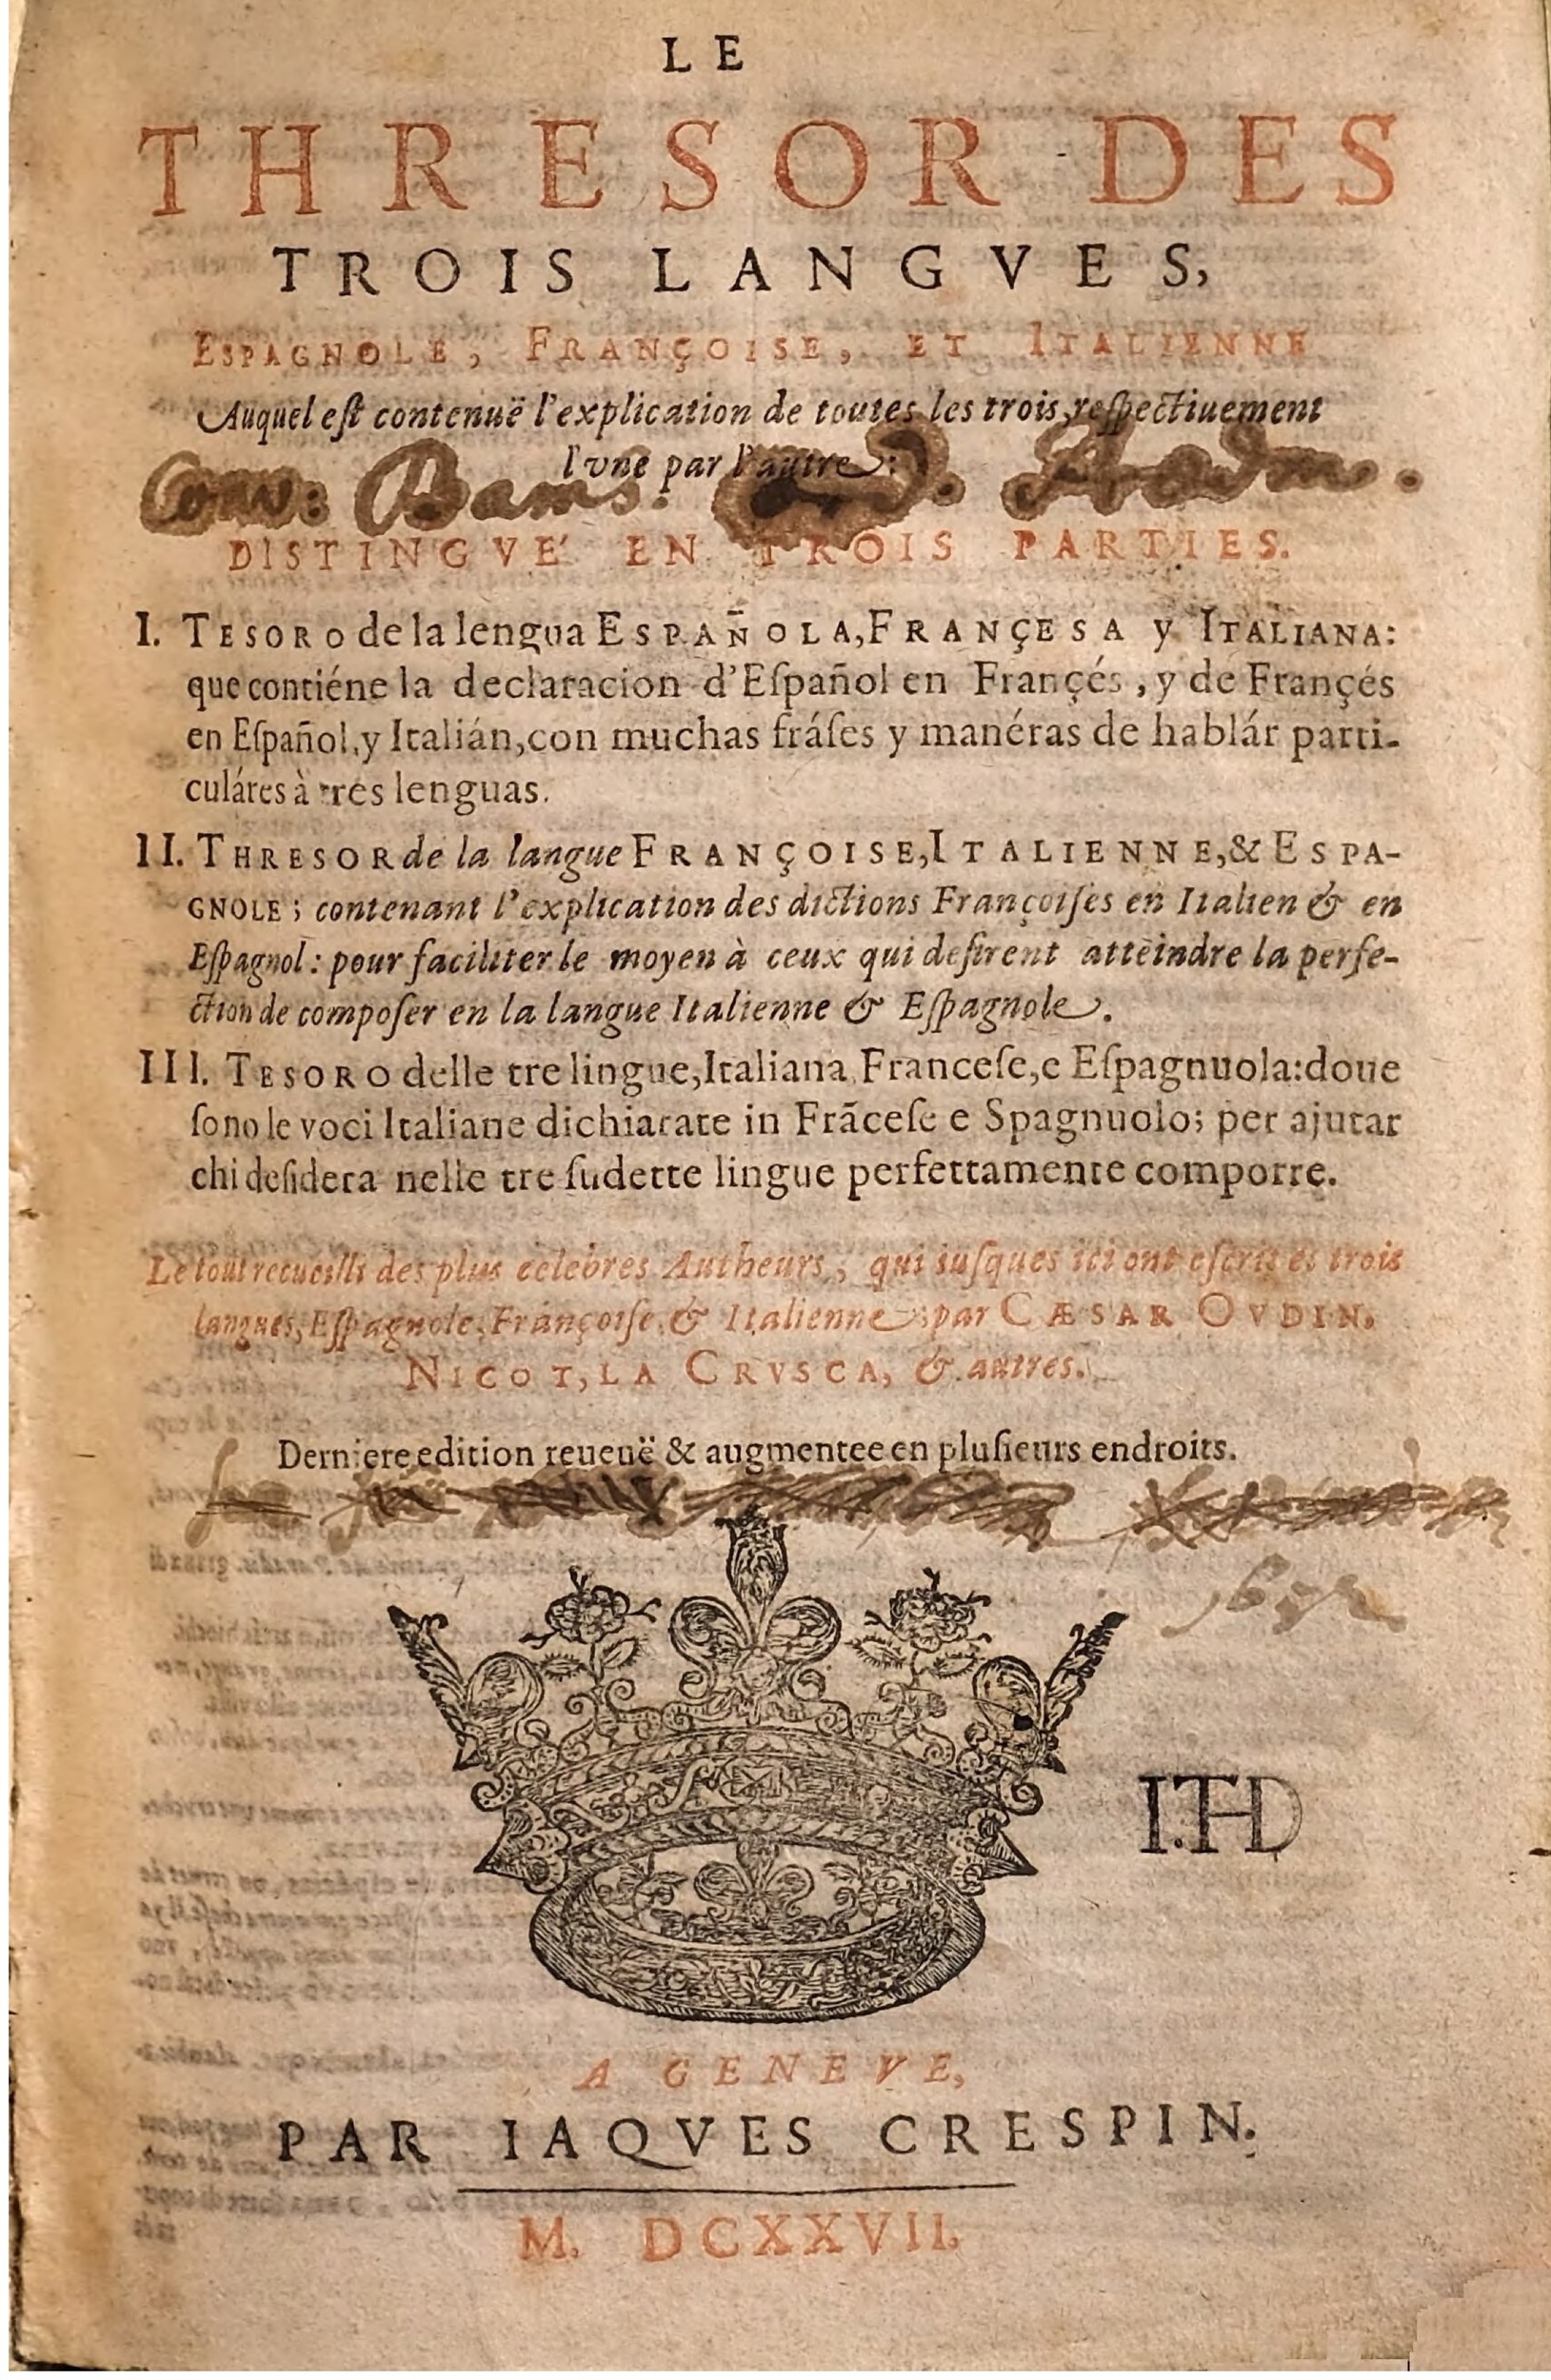 LE
THRESOR DES
TROIS LANGVES,
ESPAGNOLE, FRANÇOISE, ET ITALIENNE
Auquel eſt contenuë l'explication de toutes les trois, reſpectiuement
l'vne par l'autre:
Conv: Bams.
DISTINGVE' EN TROIS PARTIES.
I. TESORO de la lengua ESPAÑOLA, FRANÇESA y ITALIANA:
que contiéne la declaracion d'Eſpañol en Françés, y de Françés
en Eſpañol, y Italián, con muchas fráſes y manéras de hablár parti-
culáres à tres lenguas.
II. THRESOR de la langue FRANÇOISE, ITALIENNE, & ESPA-
GNOLE; contenant l'explication des dictions Françoiſes en Italien & en
Eſpagnol: pour faciliter le moyen à ceux qui deſirent atteindre la perfe-
ction de compoſer en la langue Italienne & Eſpagnole.
III. TESORO delle tre lingue, Italiana, Franceſe, e Eſpagnuola: doue
ſono le voci Italiane dichiarate in Frãceſe e Spagnuolo; per ajutar
chi deſidera nelle tre ſudette lingue perfettamente comporre.
Le tout recueilli des plus celebres Autheurs, qui iuſques ici ont eſcrit és trois
langues, Eſpagnole, Françoiſe, & Italienne: par CÆSAR OVDIN,
NICOT, LA CRVSCA, & autres.
Derniere edition reueuë & augmentee en pluſieurs endroits.
I.THD
A GENEVE,
PAR IAQVES CRESPIN.
M. DCXXVII.